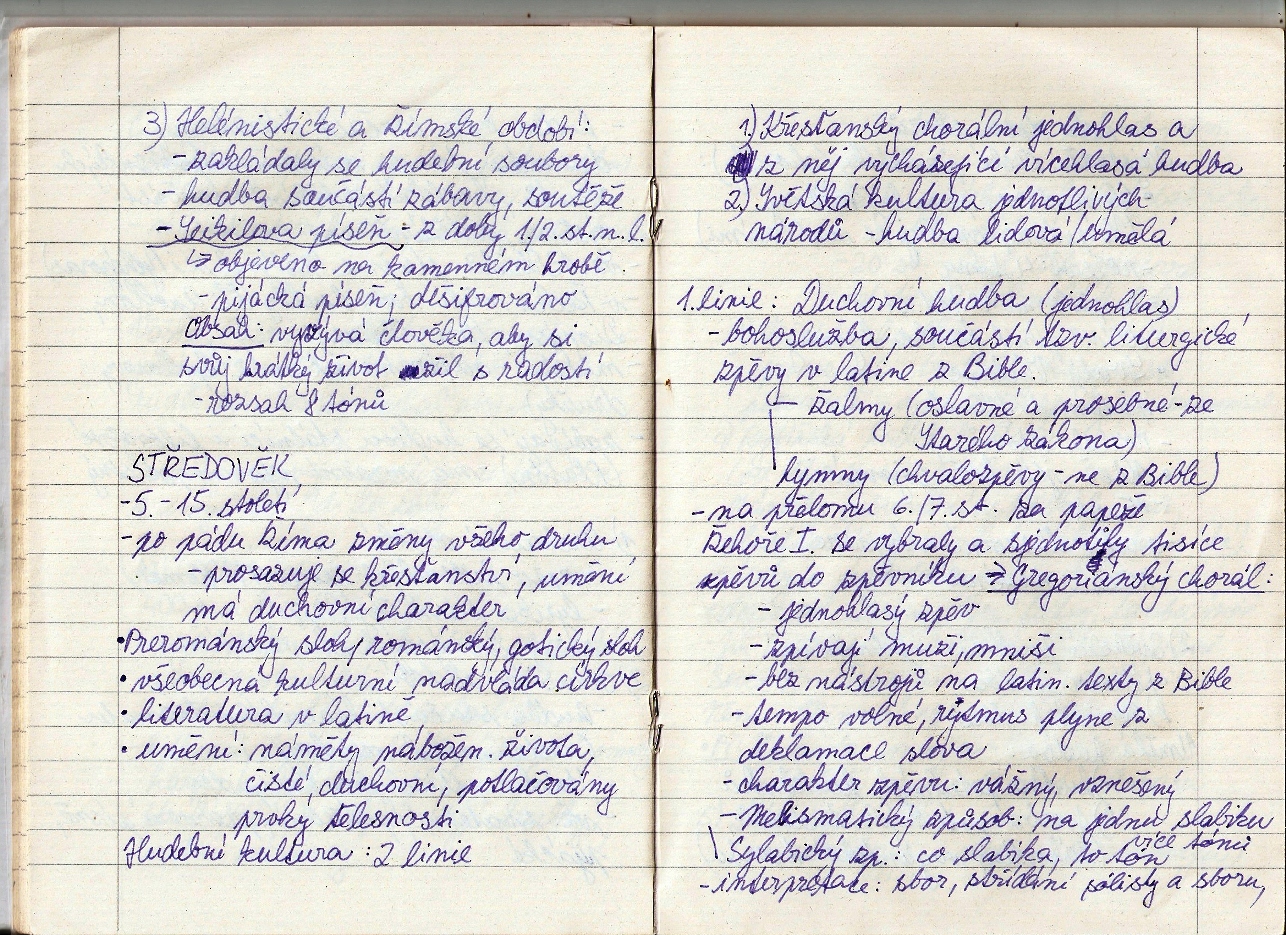 3) Helénistické a římské období:
- zakládaly se hudební soubory
- hudba součástí zábavy, soutěže
- Seikilova píseň - z doby 1/2. st. n. l.
↳ objeveno na kamenném hrobě
- pijácká píseň; dešifrováno
Obsah: vyzývá člověka, aby si
svůj krátký život užil s radostí
- rozsah 8 tónů
STŘEDOVĚK
- 5. - 15. století
- po pádu Říma změny všeho druhu
- prosazuje se křesťanství, umění
má duchovní charakter
• Preromanský sloh, románský, gotický sloh
• všeobecná kulturní nadvláda církve
• literatura v latině
• umění: náměty nábožen. života,
čisté, duchovní, potlačovány
prvky tělesnosti
Hudební kultura: 2 linie
1) Křesťanský chorální jednohlas a
z něj vycházející vícehlasá hudba
2) Světská kultura jednotlivých
národů - hudba lidová/umělá
1. linie: Duchovní hudba (jednohlas)
- bohoslužba, součástí tzv. liturgické
zpěvy v latině z Bible.
- žalmy (oslavné a prosebné - ze
Starého zákona)
hymny (chvalozpěvy - ne z Bible)
- na přelomu 6./7. st. za papeže
Řehoře I. se vybraly a sjednotily tisíce
zpěvů do zpěvníku => Gregoriánský chorál:
- jednohlasý zpěv
- zpívají muži, mniši
- bez nástrojů na latin. texty z Bible
- tempo volné, rytmus plyne z
deklamace slova
- charakter zpěvu: vážný, vznešený
- Melismatický způsob: na jednu slabiku
více tónů
Sylabický zp.: co slabika, to tón
- interpretace: sbor, střídání sólisty a sboru,